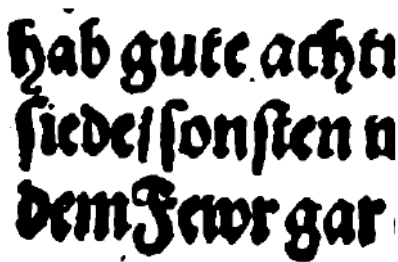 hab gute acht
ſiede/ ſonſten
dem Fewr gar